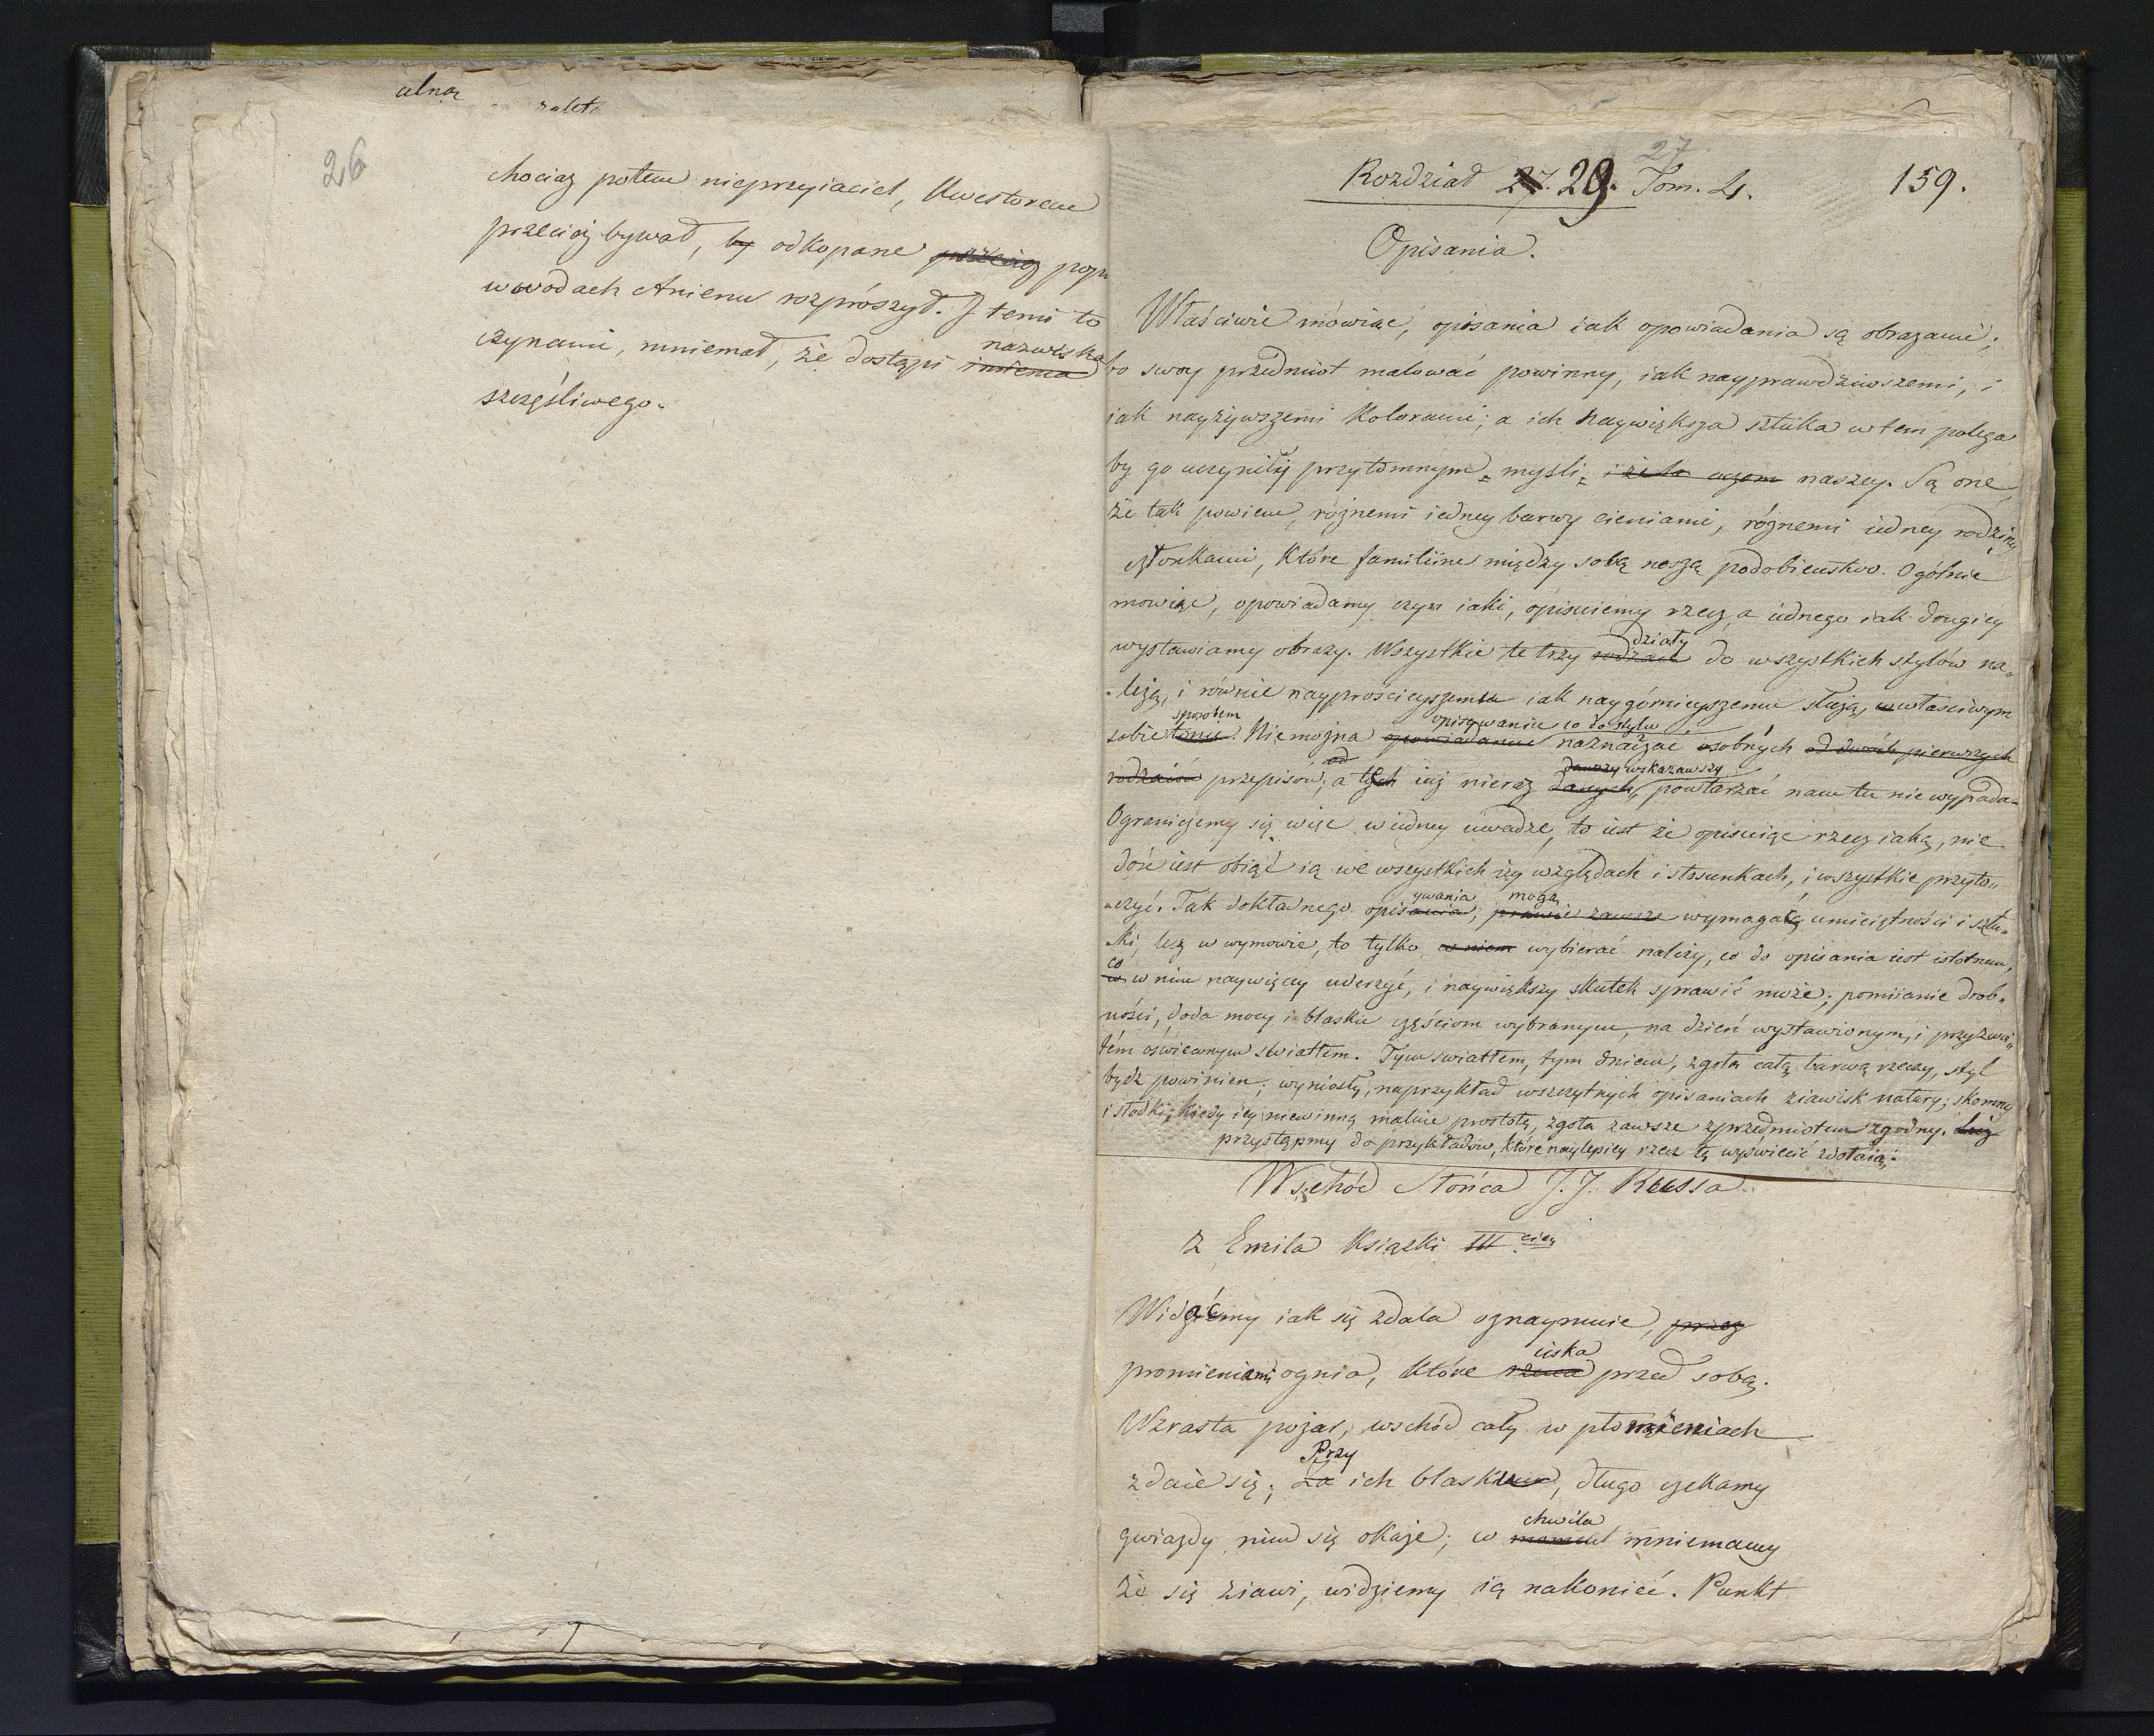 alnoz zalet
26
chociaz potem nieprzyiaciel, Kwestorem
przeciez bywał, by odkopane przeciez popi
w wodach Anienu rozproszył. I temi to
czynami, mniemał, że dostąpi imienia nazwiska
szczęśliwego.
27
Rozdział 27. 29. Tom. 4. 159.
Opisania.
Właściwie mówiąc, opisania iak opowiadania są obrazami;
bo swoy przedmiot malować powinny, iak nayprawdziwszemi, i
iak nayżywszemi kolorami; a ich naywiększa sztuka w tem polega
by go uczyniły przytomnym myśli i że to oczom naszey. Są one
że tak powiem, róznemi iedney barwy cieniami, róznemi iedney rodziny
członkami, które familiine między sobą noszą podobieństwo. Ogólnie
mowiąc, opowiadamy czyn iaki, opisuiemy rzecz, a iednego iak drugiey
działy
wystawiamy obrazy. Wszystkie te trzy rodzaie do wszystkich stylów na„
„leżą, i równie nayprościeyszemu iak naygórnieyszemu służą, właściwym
sposobem opisywaniu co do stylu
sobie tonu. Nie mozna opowiadaniu naznaczac osobnych od dwóch pierwszych
od dawszy wskazawszy
rodzaiów przepisów; a tych iuż nieraz danych, powtarzać nam tu nie wypada.
Ograniczemy się więc w iedney uwadze, to iest że opisuiąc rzecz iaką, nie
dosć iest obiąć ią we wszystkich iey względach i stosunkach, i wszystkie przyto„
ywania mogą
„czyć. Tak dokładnego opisania, prawie zawsze wymagaią umieiętności i sztu„
ki, lecz w wymowie, to tylko w niem wybierać należy, co do opisania iest istotnem,
co
w w nim naywięcey uderzyć, i naywiększy skutek sprawić może; pomiianie drob„
ności, doda mocy i blasku częściom wybranym, na dzień wystawionym, i przyzwoi„
tém oświeconym światłem. Tym swiatłem, tym dniem, zgoła całą barwą rzeczy, styl
bydz powinien; wyniosły, naprzykład w szczytnych opisaniach ziawisk natury; skromny
i słodki, kiedy iey niewinną maluie prostotę, zgoła zawsze z przedmiotem zgodny. Lecz
przystąpmy do przykładów, które naylepiey rzecz tę wyświecić zdołaią.
Wschód Słońca J. J. Russa
z Emila Książki III ciey
Widziemy iak się zdala oznaymuie, przez
ciska
promieniami ognia, które rzuca przed sobą.
Wzrasta pożar, wschód cały w płomieniach
Przy
zdaie się; Za ich blaskiem, długo czekamy
chwila
gwiazdy nim się okaże; co moment mniemamy
że się ziawi, widziemy ią nakoniec. Punkt